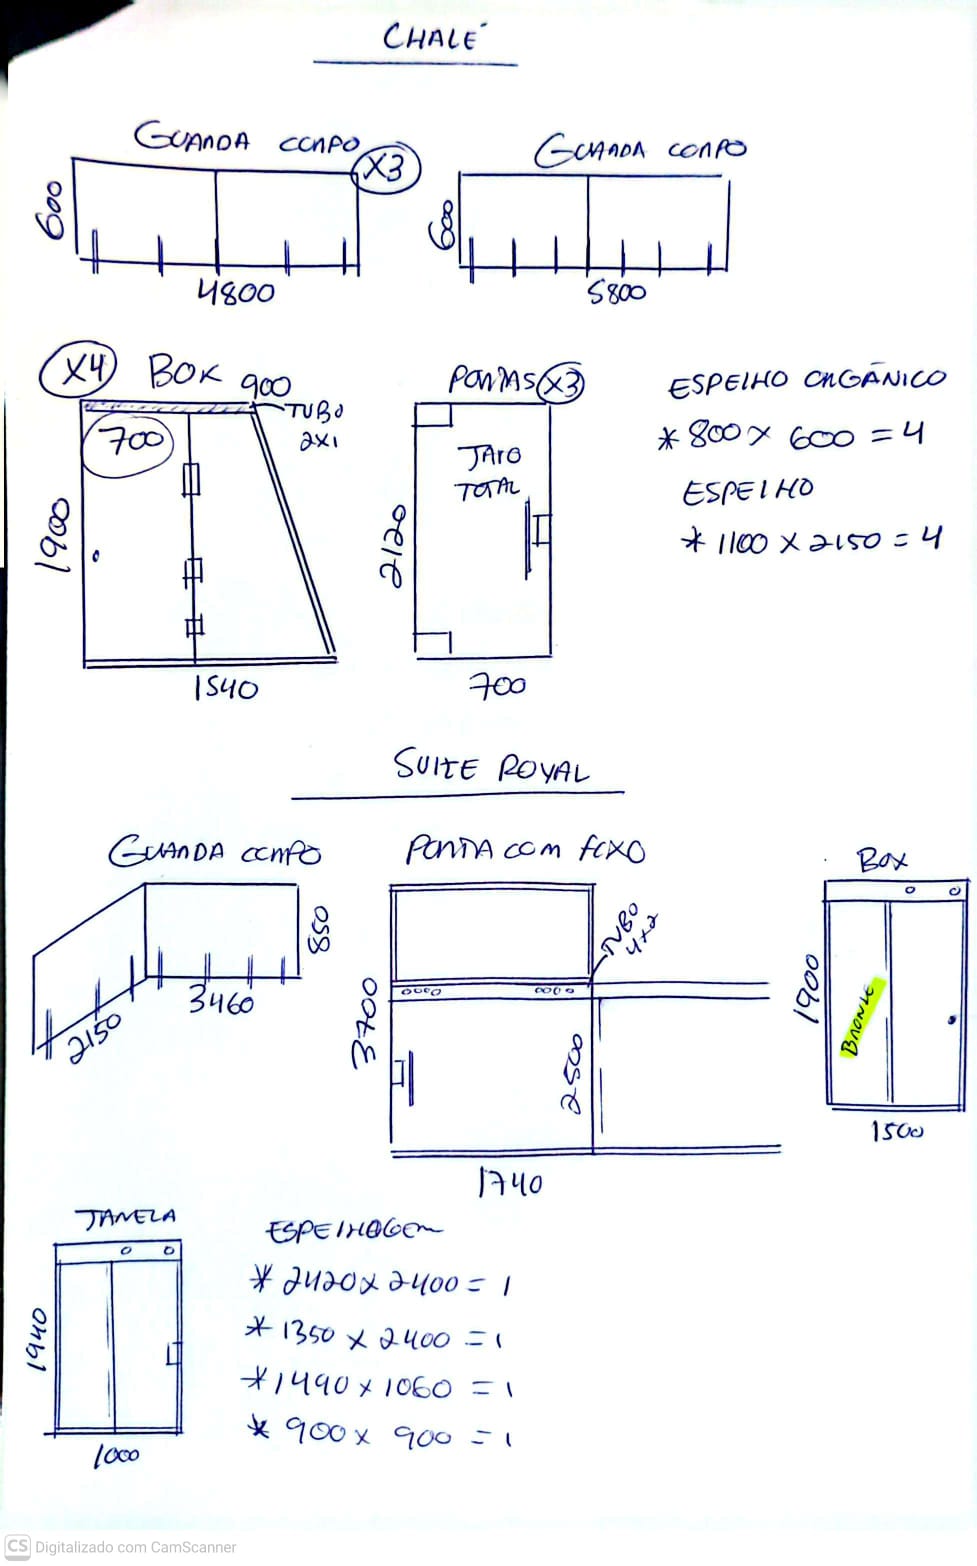 CHALÉ
GUARDA CORPO
X3
600
4800
GUARDA CORPO
600
5800
X4 BOX
900
TUBO
2X1
700
1900
1540
PORTAS X3
JATO
TOTAL
2120
700
ESPELHO ORGÂNICO
* 800 X 600 = 4
ESPELHO
* 1100 X 2150 = 4
SUITE ROYAL
GUARDA CORPO
850
3460
2150
PORTA COM FIXO
TUBO
4x2
3700
2500
1740
BOX
1900
BRONZE
1500
JANELA
1940
1000
ESPELHAGEM
* 2420 X 2400 = 1
* 1350 X 2400 = 1
* 1490 X 1060 = 1
* 900 X 900 = 1
CS Digitalizado com CamScanner